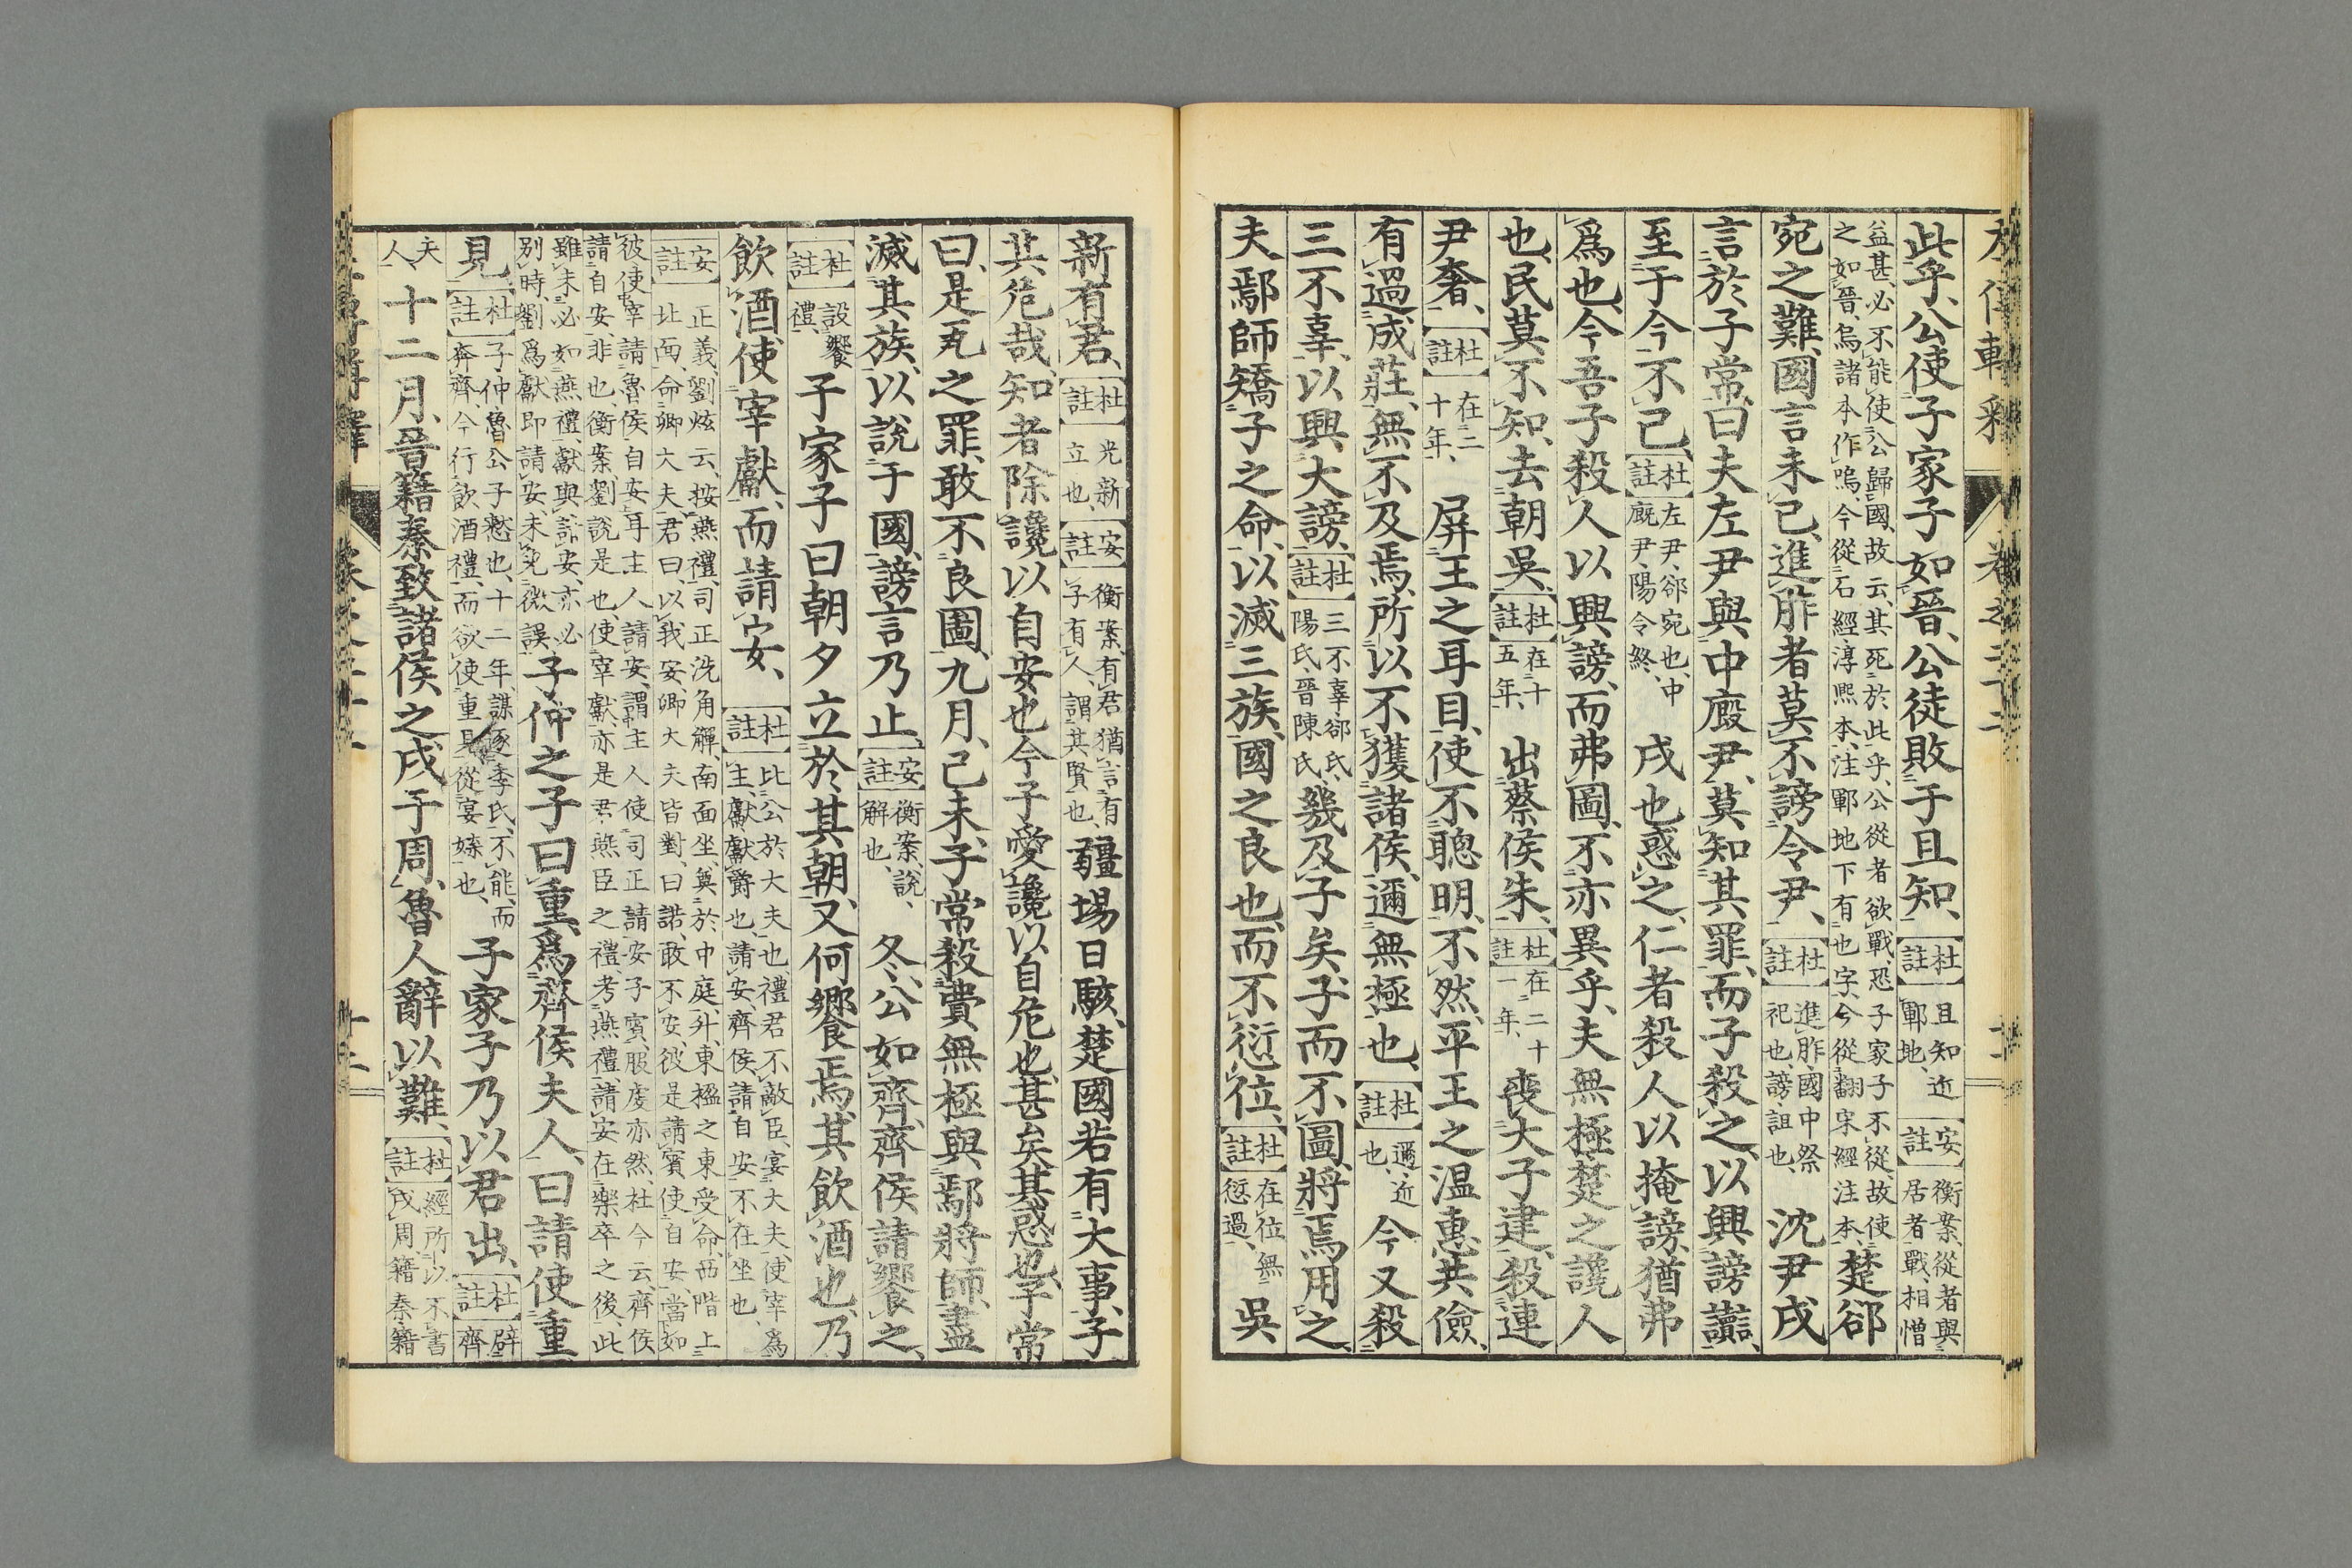 此乎、公使子家子如晉、公徒敗于且知、【杜註】且知近鄆地、【安註】衡案、從者與居者戰、相憎
益甚、必不能使公歸國、故云、其死於此乎、公從者欲戰、恐子家子不從、故使之如晉、烏諸本作嗚、今從石經淳熙本、注鄆地下有也字、今從翻宋經注本、楚郤
宛之難、國言未已、進胙者莫不謗令尹、【杜註】進胙、國中祭祀也、謗、詛也、沈尹戌
言於子常曰、夫左尹與中廄尹、莫知其罪、而子殺之、以興謗讟、
至于今不已、【杜註】左尹、郤宛也、中廄尹、陽令終、戌也惑之、仁者殺人以掩謗、猶弗
爲也、今吾子殺人以興謗、而弗圖、不亦異乎、夫無極、楚之讒人
也、民莫不知、去朝吳、【杜註】在十五年、出蔡侯朱、【杜註】在二十一年、喪大子建、殺連
尹奢、【杜註】在二十年、屏王之耳目、使不聰明、不然、平王之溫惠共儉、
有過成莊、無不及焉、所以不獲諸侯、邇無極也、【杜註】邇、近也、今又殺
三不辜、以興大謗、【杜註】三不辜、郤氏、陽氏、晉陳氏、幾及子矣、子而不圖、將焉用之、
夫鄢師矯子之命、以滅三族、國之良也、而不愆位、【杜註】在位無愆過、吳
新有君、【杜註】光新立也、【安註】衡案、有君、猶言有子有人、謂其賢也、疆埸日駭、楚國若有大事、子
其危哉、知者除讒以自安也、今子愛讒以自危也、甚矣其惑也、子常
曰、是瓦之罪、敢不良圖、九月、己未、子常殺費無極與鄢將師、盡
滅其族、以說于國、謗言乃止、【安註】衡案、說、解也、冬、公如齊、齊侯請饗之、
【杜註】設饗禮、子家子曰、朝夕立於其朝、又何饗焉、其飲酒也、乃
飲酒、使宰獻、而請安、【杜註】比公於大夫也、禮君不敵臣、宴大夫、使宰爲主、獻、獻爵也、請安、齊侯請自安、不在坐也、
【安註】正義、劉炫云、按燕禮、司正洗角觶、南面坐、奠於中庭、升、東楹之東受命、西階上北面、命卿大夫、君曰、以我安、卿大夫皆對曰、諾敢不安、彼是請賓使自安、當如
彼使宰請、魯侯自安耳、主人請安、謂主人使司正請安于賓、服虔亦然、杜今云、齊侯請自安、非也、衡案、劉說是也、使宰獻、亦是君燕臣之禮、考燕禮、請安在樂卒之後、此
雖未必如燕禮、獻與請安、亦必別時、劉爲獻即請安、未免微誤、子仲之子曰重、爲齊侯夫人、曰請使重
見、【杜註】子仲、魯公子憖也、十二年、謀逐季氏、不能、而奔齊、今行飲酒禮、而欲使重見、從宴媟也、子家子乃以君出、【杜註】辟齊
夫人、十二月、晉籍秦致諸侯之戍于周、魯人辭以難、【杜註】經所以不書戍周、籍秦、籍